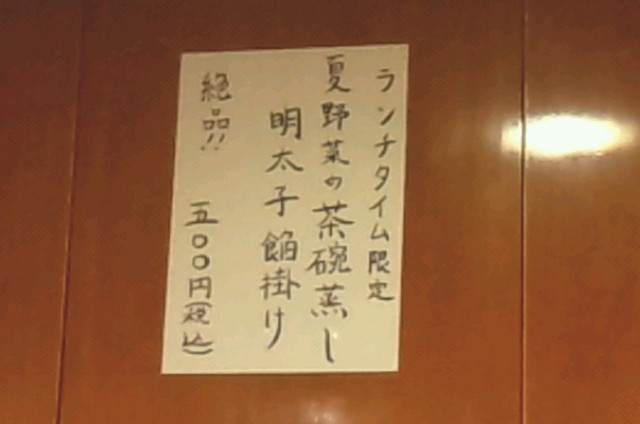 ランチタイム限定
夏野菜の茶碗蒸し
明太子餡掛け
絶品!!
五〇〇円(税込)